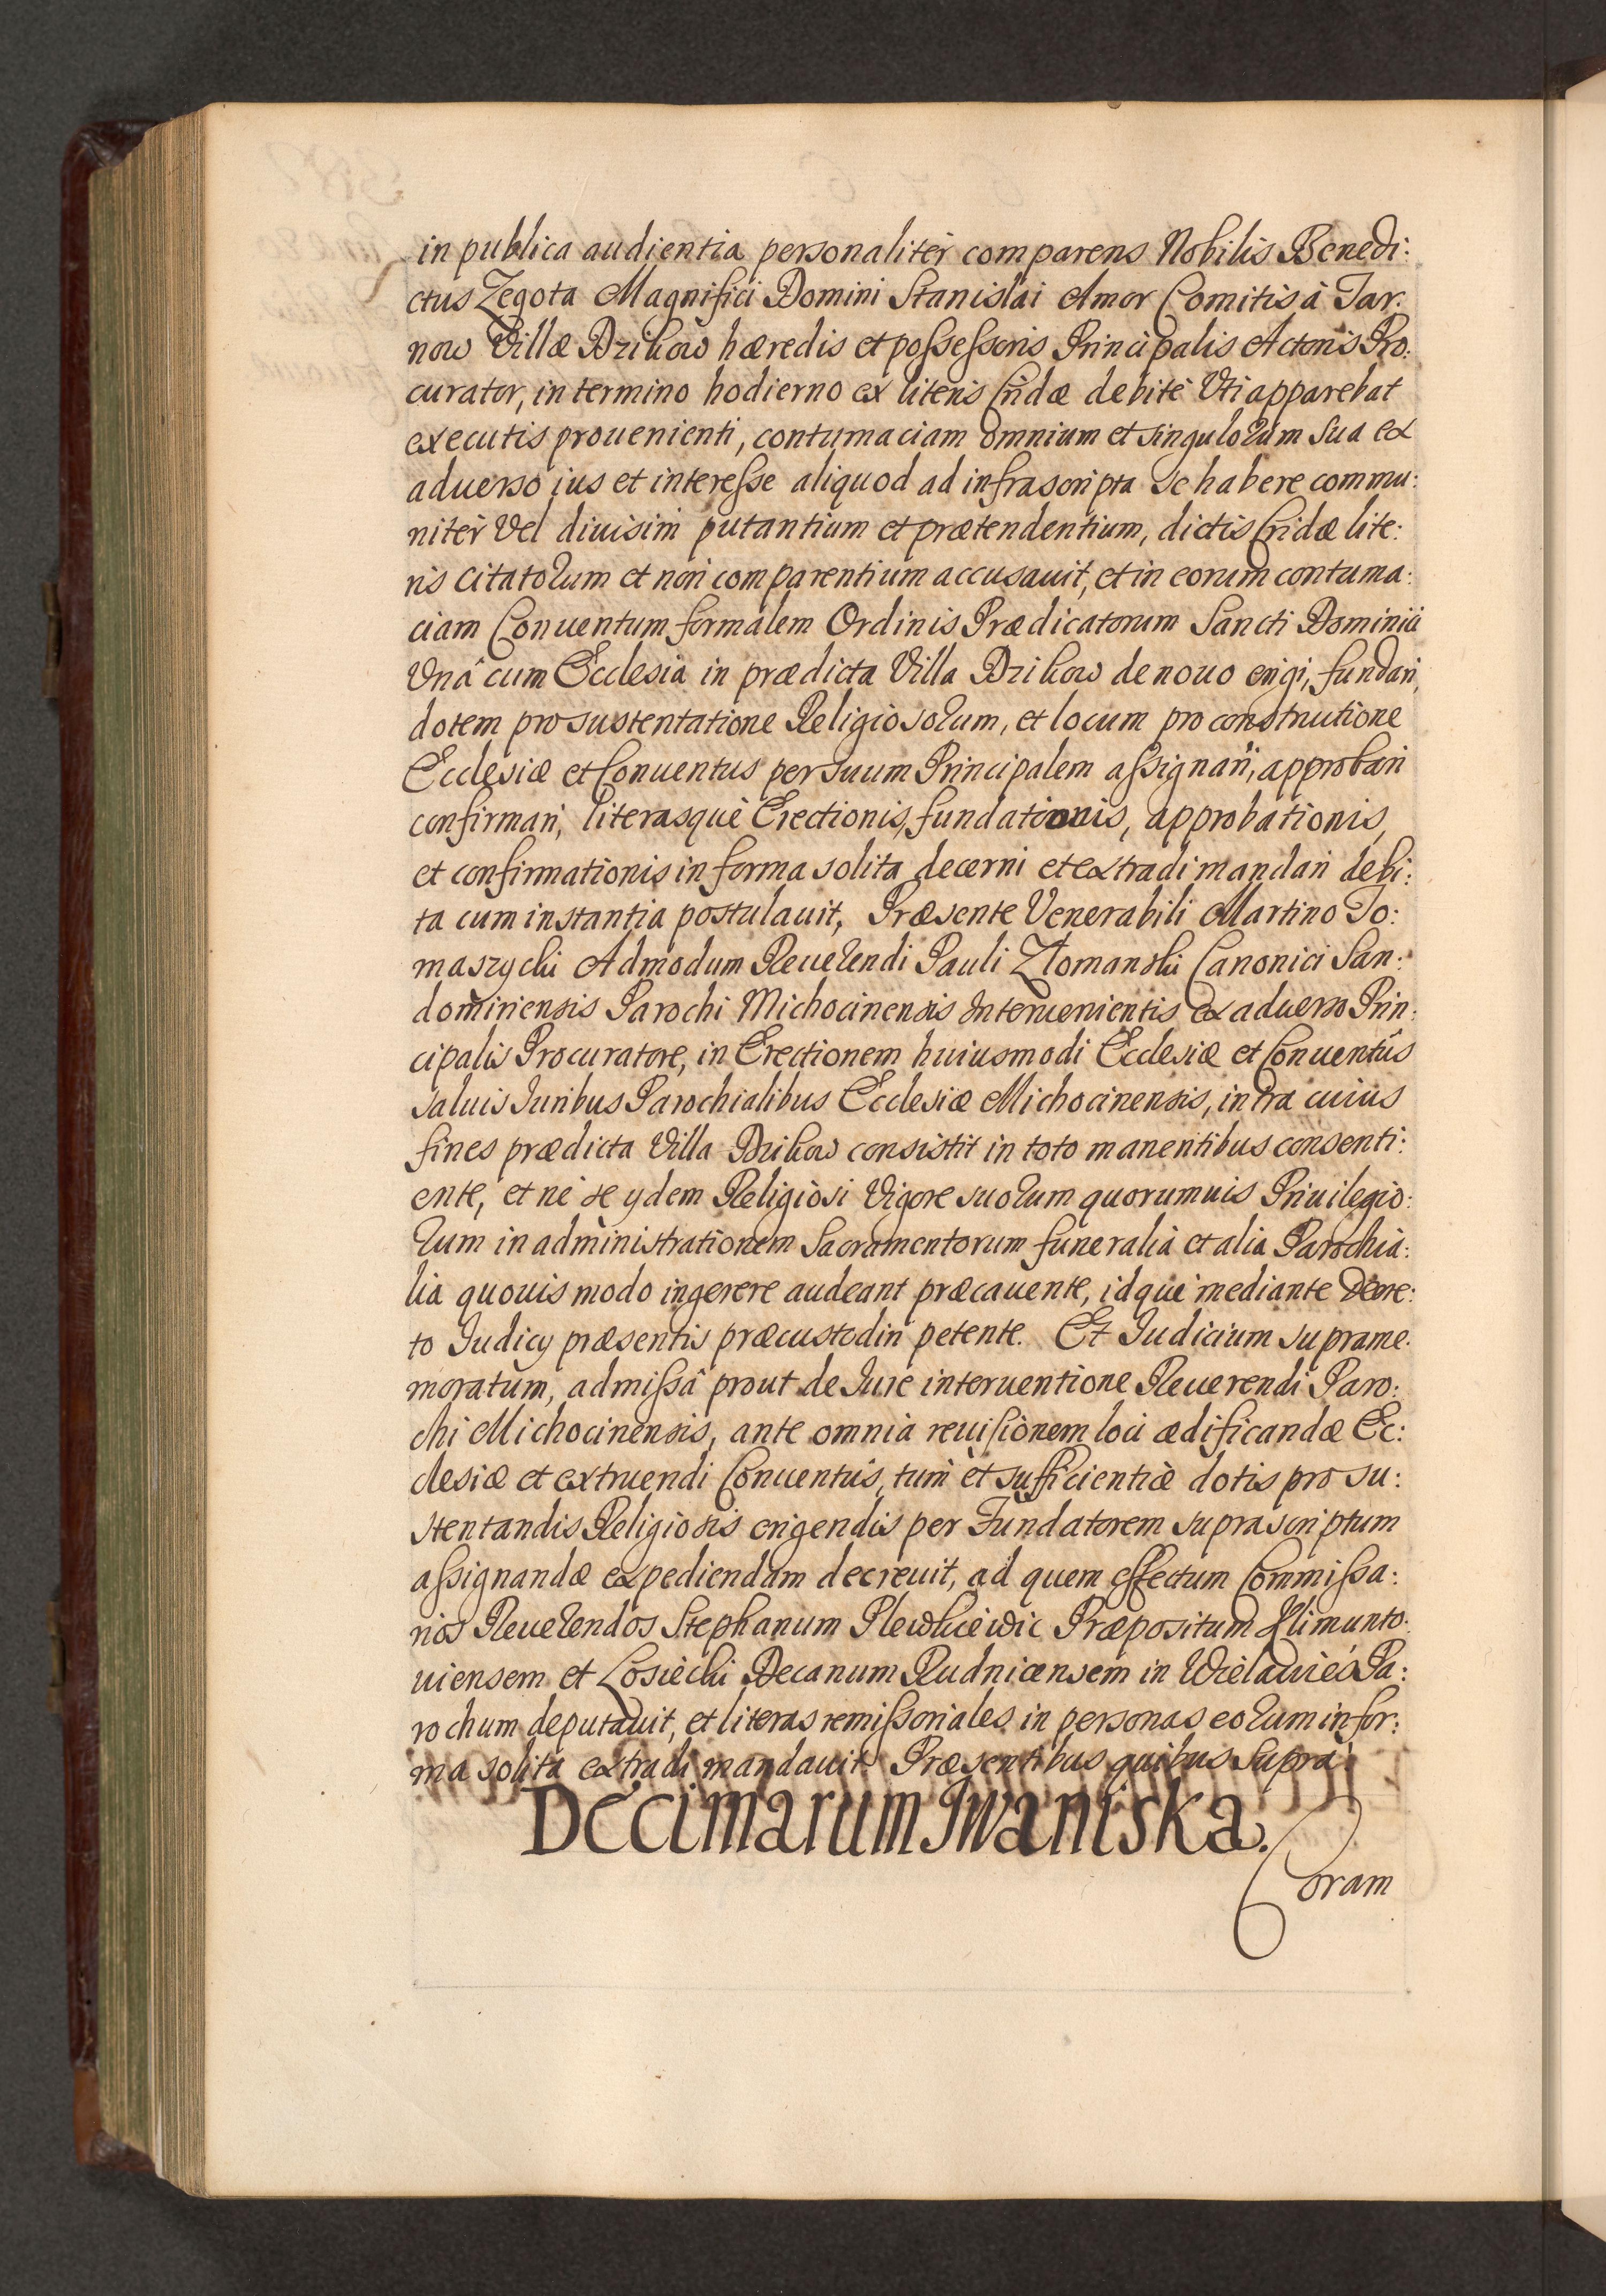 in publica audientia personaliter comparens Nobilis Benedi:
ctus Zegota Magnifici Domini Stanislai Amor Comitis à Tar:
now Villæ Dzikow hæredis et possessoris Principalis Actoris Pro:
curator, in termino hodierno ex literis Cridæ debitè Vti apparebat
executis prouenienti, contumaciam omnium et singulorum sua ex
aduerso ius et interesse aliquod ad infrascripta se habere commu:
nitèr Vel diuisim putantium et prætendentium, dictis Cridæ lite:
ris citatorum et non comparentium accusauit, et in eorum contuma:
ciam Conuentum formalem Ordinis Prædicatorum Sancti Dominici
Vnâ cum Ecclesia in prædicta Villa Dzikow de nouo erigi, fundari,
dotem pro sustentatione Religiosorum, et locum pro construtione
Ecclesiæ et Conuentus per suum Principalem assignari, approbari
confirmari, literasquè Erectionis, fundationis, approbationis,
et confirmationis in forma solita decerni et extradi mandari debi:
ta cum instantia postulauit, Præsente Venerabili Martino To:
maszycki Admodum Reuerendi Pauli Złomanski Canonici San:
domiriensis Parochi Michocinensis Interuenientis ex aduerso Prin:
cipalis Procuratore, in Erectionem huiusmodi Ecclesiæ et Conuentûs
saluis Iuribus Parochialibus Ecclesiæ Michocinensis, intra cuius
fines prædicta Villa Dzikow consistit in toto manentibus consenti:
ente, et nè se ydem Religiosi Vigore suorum quorumuis Priuilegio:
rum in administrationem Sacramentorum funeralia et alia Parochia:
lia quouis modo ingerere audeant præcauente, idquè mediante Decre:
to Iudicy præsentis præcustodiri petente. Et Iudicium suprame:
moratum, admissâ prout de Iure interuentione Reuerendi Paro:
chi Michocinensis, ante omnia reuisionem loci ædificandæ Ec:
clesiæ et extruendi Conuentûs, tum et sufficientiæ dotis pro su:
stentandis Religiosis erigendis per Fundatorem suprascriptum
assignandæ expediendam decreuit, ad quem effectum Commissa:
rios Reuerendos Stephanum Plewkiewic Præpositum Klimunto:
uiensem et Losiecki Decanum Rudnicensem in Wielowieś Pa:
rochum deputauit, et literas remissoriales in personas eorum in for:
ma solita extradi mandauit Præsentibus quibus Supra.
Decimarum Iwaniska.
Coram